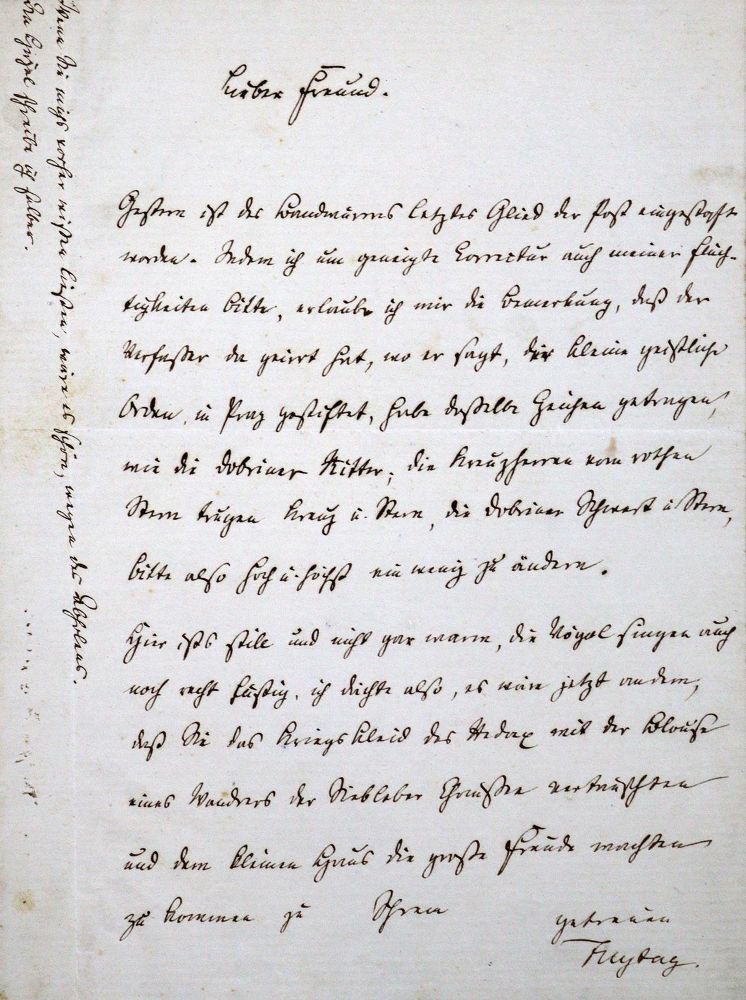 Lieber Freund.
Gestern ist des Bandwurms letztes Glied der Post eingestopft
worden. Indem ich um geneigte Correctur auch meiner Flüch-
tigkeiten bitte, erlaube ich mir die Bemerkung, daß der
Verfasser da geirrt hat, wo er sagt, der kleine geistliche
Orden, in Prag gestiftet, habe dasselbe Zeichen getragen,
wie die Dobriner Ritter; die Kreuzherren vom rothen
Stern trugen Kreuz u. Stern, die Dobriner Schwert u Stern,
bitte also hoch u. höchst ein wenig zu ändern.
Hier ists still und nicht gar warm, die Vögel singen auch
noch recht lustig, ich dächte also, es wäre jetzt an dem,
daß Sie das Kriegskleid des Redax mit der Blouse
eines Wandrers der Siebleber Chaussee vertauschten
und dem kleinen Haus die große Freude machten
zu kommen zu Ihrem getreuen
Freytag.
Wenn Sie michs vorher wissen ließen, wäre es schön, wegen des Abholens.
An Hirzel schreibe ich selber.